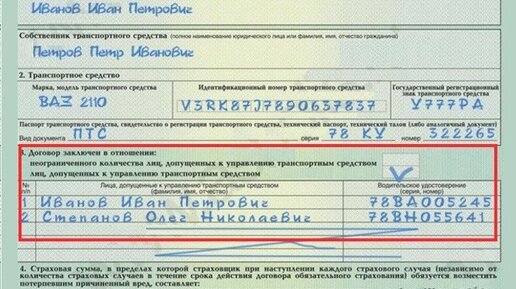 Иванов Иван Петрович
Собственник транспортного средства (полное наименование юридического лица или фамилия, имя, отчество гражданина)
Петров Петр Иванович
2. Транспортное средство
Марка, модель транспортного средства Идентификационный номер транспортного средства Государственный регистрационный знак транспортного средства
ВАЗ 2110 V3RK87J7890637837 У777РА
Паспорт транспортного средства, свидетельство о регистрации транспортного средства, технический паспорт, технический талон (либо аналогичный документ)
Вид документа ПТС серия 78 КУ номер 322265
3. Договор заключен в отношении:
неограниченного количества лиц, допущенных к управлению транспортным средством
лиц, допущенных к управлению транспортным средством V
№ п/п Лица, допущенные к управлению транспортным средством (фамилия, имя, отчество) Водительское удостоверение (серия, номер)
1 Иванов Иван Петрович 78ВА005245
2 Степанов Олег Николаевич 78ВН055641
4. Страховая сумма, в пределах которой страховщик при наступлении каждого страхового случая (независимо от
количества страховых случаев в течение срока действия договора обязательного страхования) обязуется возместить
потерпевшим причиненный вред, составляет: